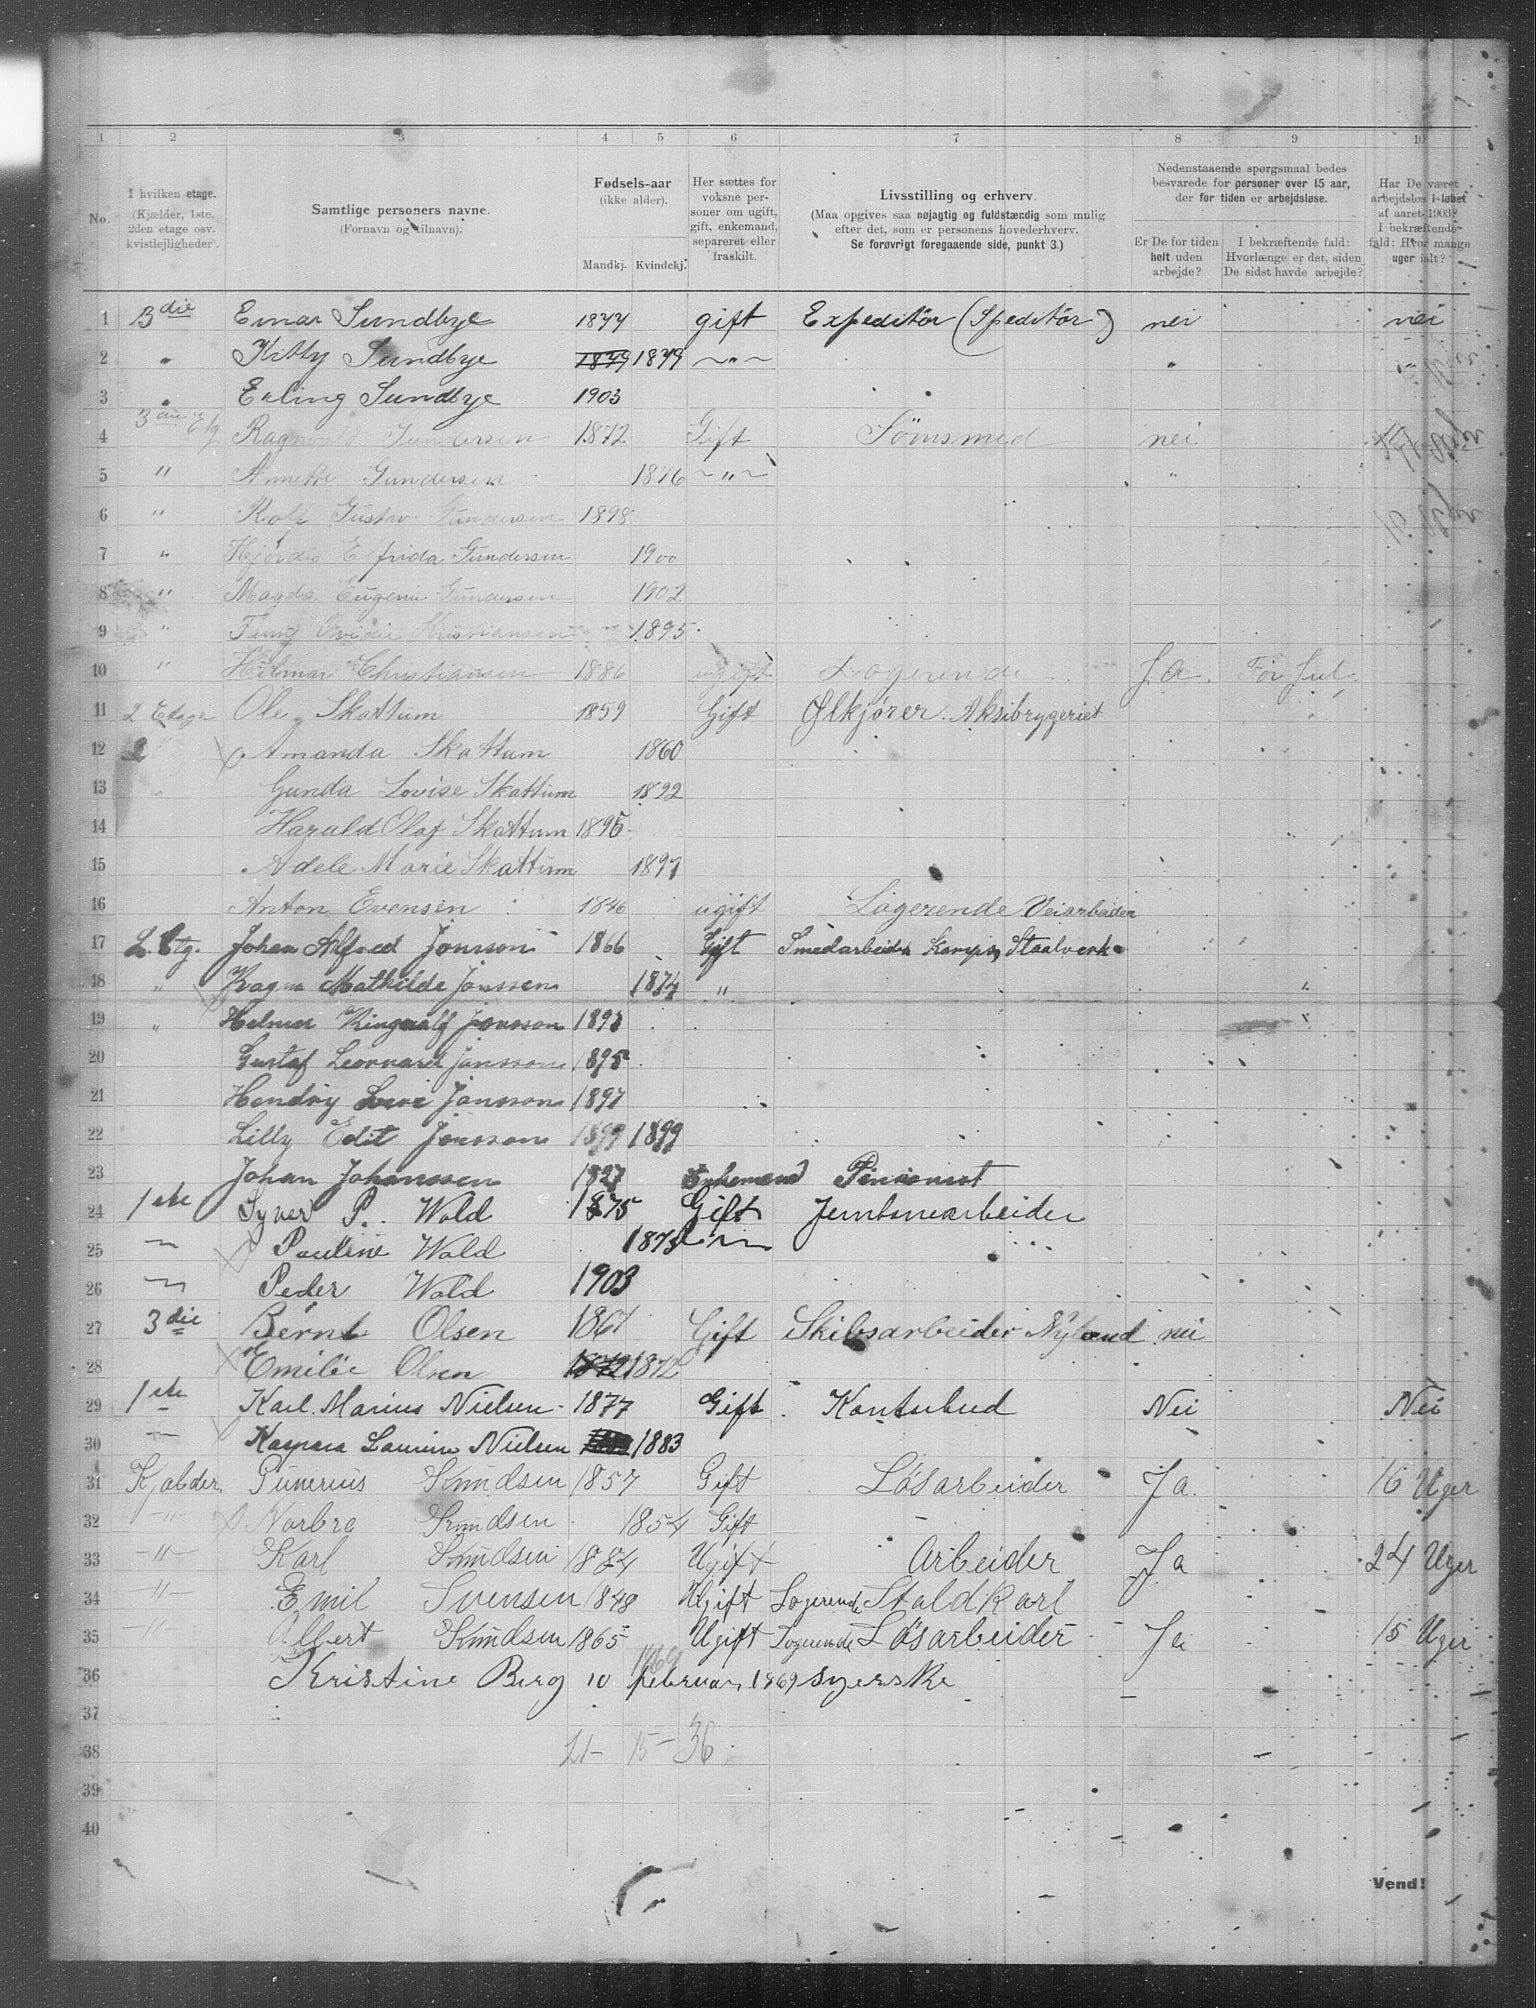 1 2 3 4 5 6 7 8 9 10
No.
I hvilken etage.
(Kjælder, 1ste, 2den etage osv. kvistlejligheder).
Samtlige personers navne.
(Fornavn og tilnavn).
Fødsels-aar
(ikke alder).
Mandkj. Kvindekj.
Her sættes for voksne personer om ugift, gift, enkemand, separeret eller fraskilt.
Livsstilling og erhverv.
(Maa opgives saa nøjagtig og fuldstændig som mulig efter det, som er personens hovederhverv.
Se forøvrigt foregaaende side, punkt 3.)
Nedenstaaende spørgsmaal bedes besvarede for personer over 15 aar, der for tiden er arbejdsløse.
Er De for tiden helt uden arbejde?
I bekræftende fald: Hvorlænge er det, siden De sidst havde arbejde?
Har De været arbejdsløs i løbet af aaret 1903? I bekræftende fald: Hvor mange uger ialt?
1 3 die Einar Sundbye 1877 gift Expeditör (Speditör) nei nei
2 " Kitty Sundbye 1879 1879 ~"~ "
3 " Erling Sundbye 1903
4 3die Etg Ragnvald Gundersen 1872 Gift Sömsmed nei
5 " Annette Gundersen 1876 ~"~ "
6 " Rolf Gustav Gundersen 1898
7 " Hjördis Elfrida Gundersen 1900
8 " Magda Eugenie Gundersen 1902
9 " Fanny Kristiansen 1895
10 " Hilmar Christiansen 1886 ugift Logerende Ja. For Jul.
11 2 Etage Ole Skattum 1859 Gift Ølkjører. Aksibrygeriet
12 2 Amanda Skattum 1860
13 " Gunda Lovise Skattum 1892
14 Harald Olaf Skattum 1895
15 Adele Marie Skattum 1897
16 Anton Evensen 1846 ugift Logerende Veiarbeider
17 2. Etg. Johan Alfred Jonsson 1866 Gift Smedarbeider Kamps Staalverk
18 " Ragna Mathilde Jonssen 1874 "
19 " Helmer Ringvalf Jonsson 1893
20 Gustaf Leonnard Jonsson 1895
21 Hendry Jonsson 1897
22 Lilly Edit Jonsson 1899 1899
23 Johan Johanssen 1827 Enkemand Pensionist
24 1 ste Syver P. Wold 1875 Gift Jerntsnearbeider
25 ~ Pauline Wold 1873 ~"~
26 ~ Peder Wold 1903
27 3 die Bernt Olsen 1867 Gift Skibsarbeider Nyland nei
28 Emilie Olsen 1872 1872
29 1 ste Karl Marius Nielsen 1877 Gift. Kontorbud Nei Nei
30 ~ Kaspara Laurine Nielsen 1883
31 Kjælder Knudsen 1857 Gift Løsarbeider Ja. 16 Uger
32 -"- Knudsen 1854 Gift
33 -"- Karl Knudsen 1884 Ugift Arbeider Ja 24 Uger
34 -"- Emil Svensen 1848 Ugift Logerende Staldkarl
35 -"- Albert Knudsen 1865 Ugift Logerende Løsarbeider Ja 15 Uger
1869
36 Kristine Berg 10 februar 1869 syerske
37
38 21- 15- 36
39
40
Vend!